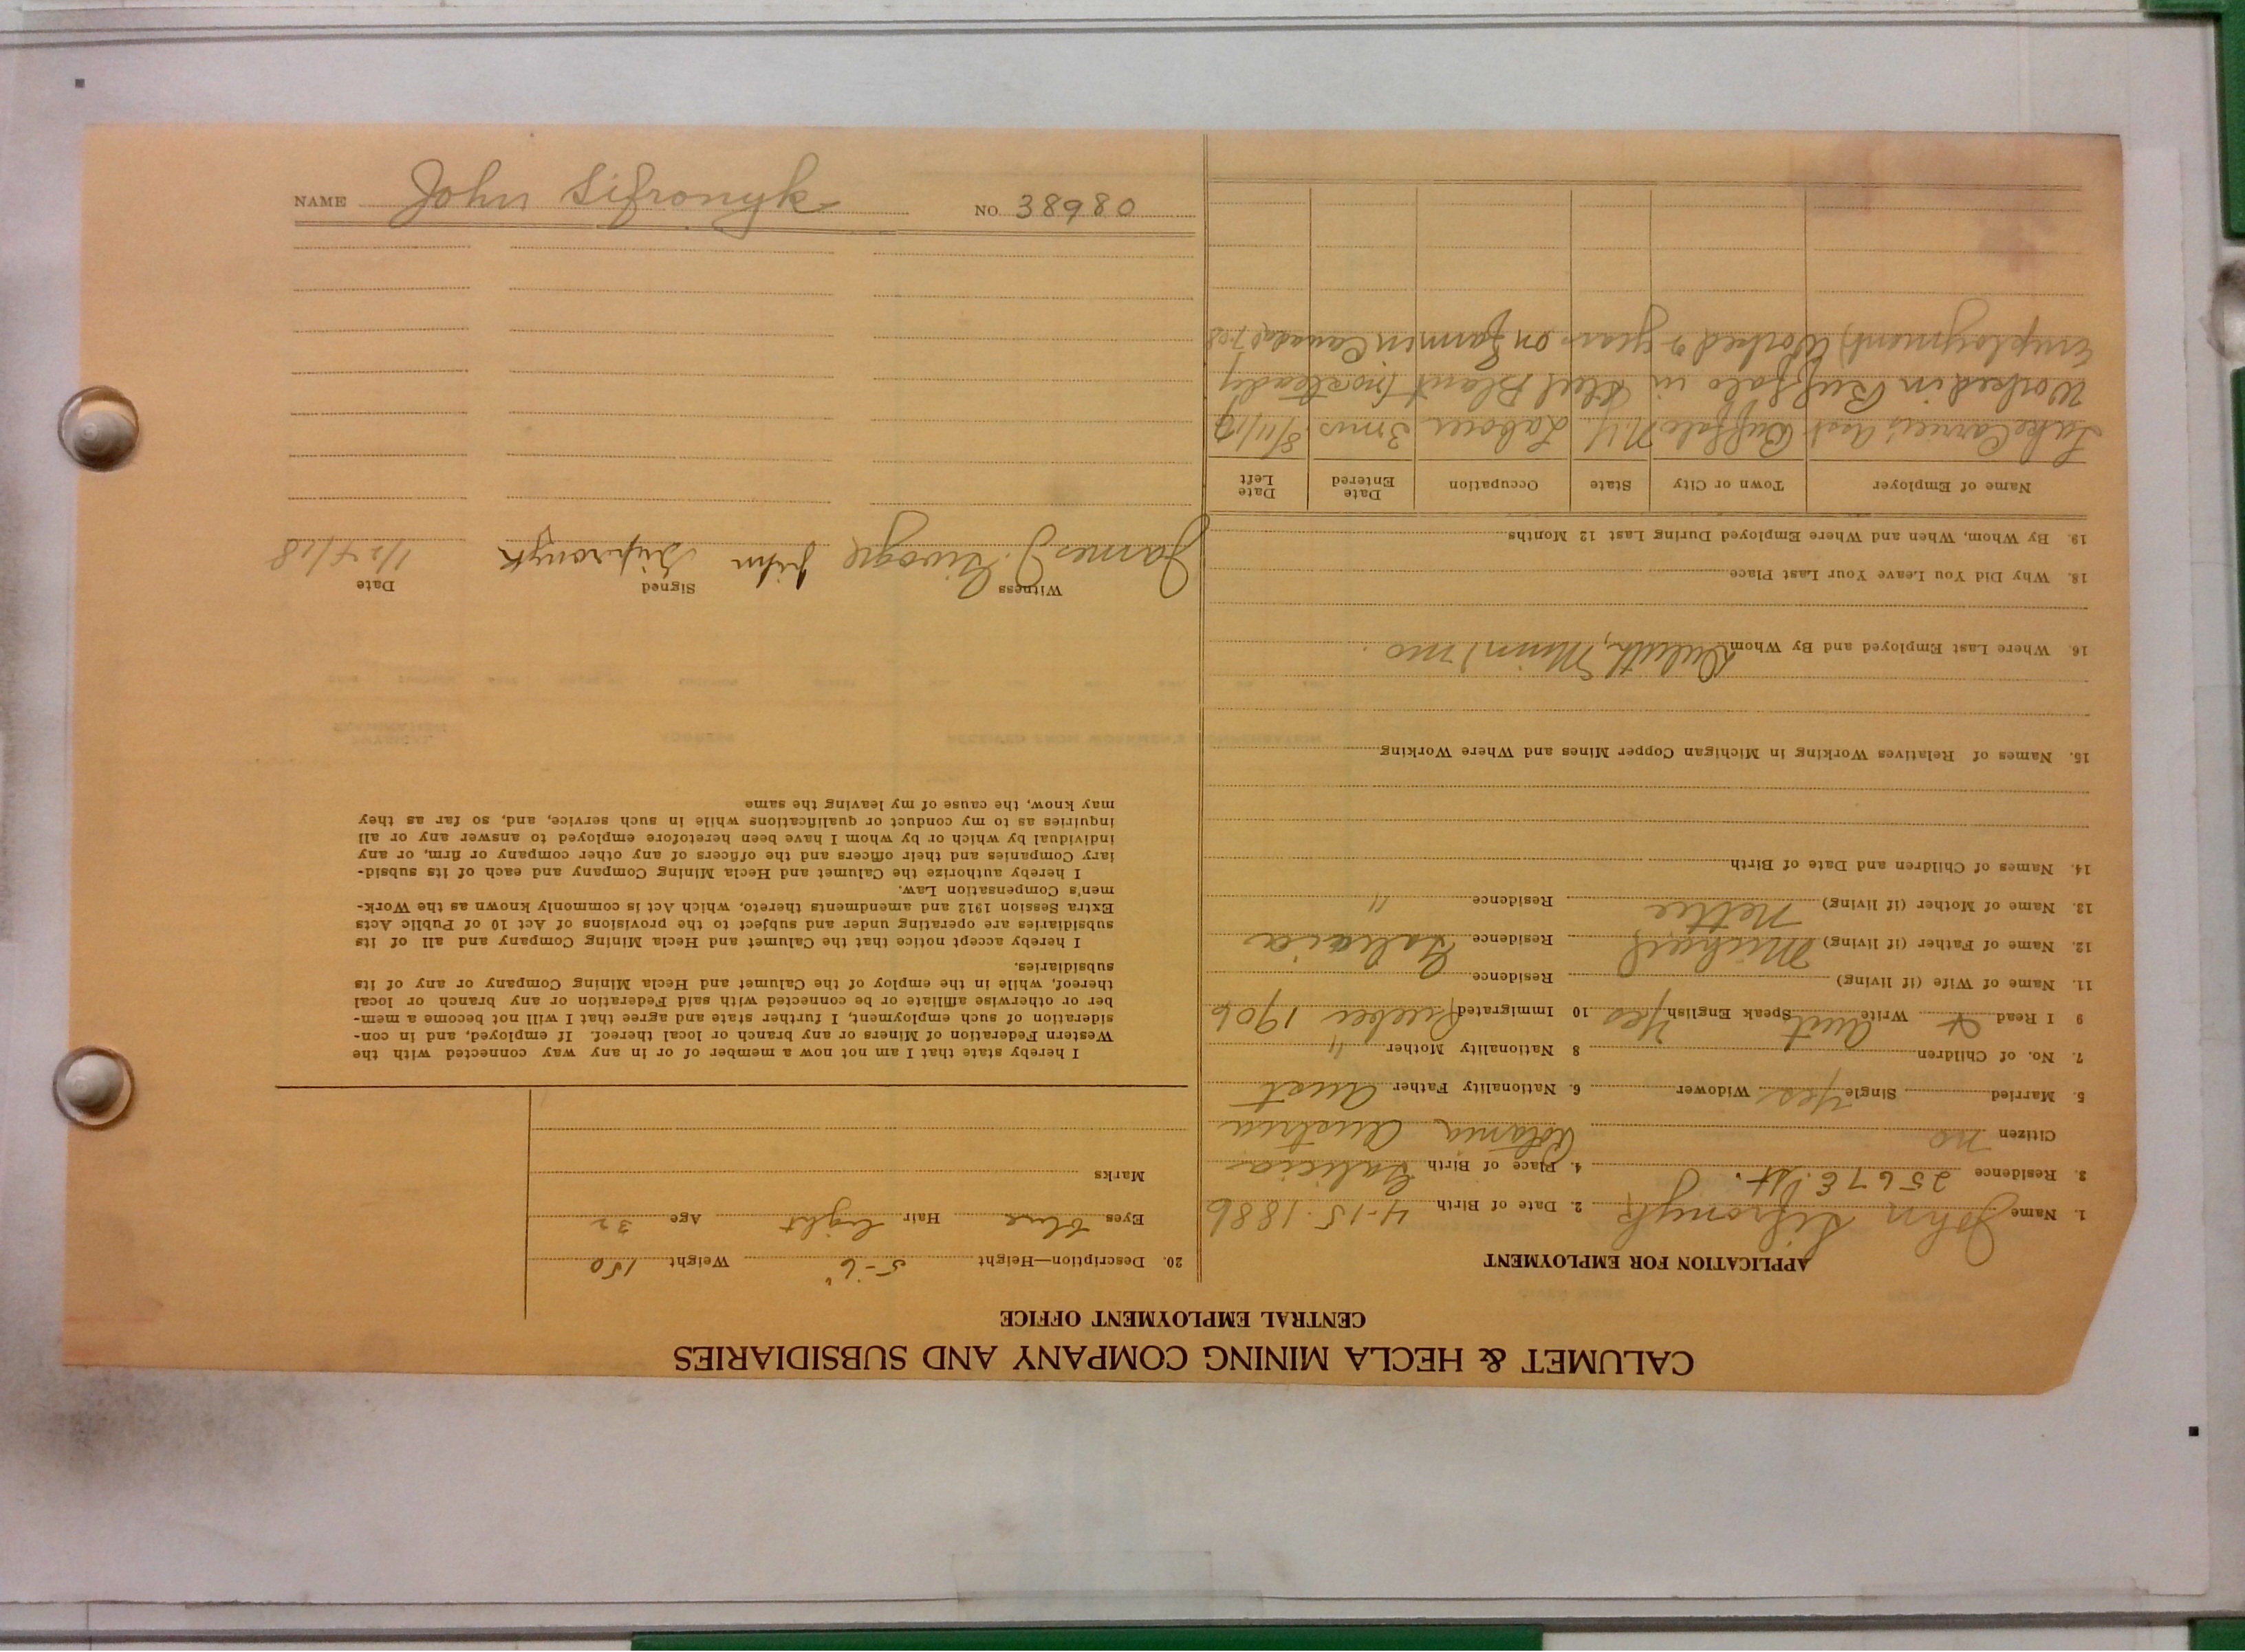 NAME John Sifronyk NO. 38980
CALUMET & HECLA MINING COMPANY AND SUBSIDIARIES
CENTRAL EMPLOYMENT OFFICE
APPLICATION FOR EMPLOYMENT
1. Name John Sifronyk 2. Date of Birth 4-15-1886
3. Residence 2567 E. St. 4. Place of Birth Galicia
Citizen no Austria
5. Married Single Yes Widower 6. Nationality Father Aust
7. No. of Children 8 Nationality Mother "
9 I Read Write Aust Speak English Yes 10 Immigrated Quebec 1906
11. Name of Wife (if living) Residence
12. Name of Father (if living) Michael Residence Galicia
13. Name of Mother (if living) Nettie Residence "
14. Names of Children and Date of Birth
15. Names of Relatives Working in Michigan Copper Mines and Where Working
16. Where Last Employed and By Whom Duluth, Minn 1 mo.
18. Why Did You Leave Your Last Place
19. By Whom, When and Where Employed During Last 12 Months
Name of Employer Town or City State Occupation Date Entered Date Left
Lake Carriers Buffalo N.Y. Labour 3 mos. 8/11/17
Worked in Buffalo in Steel Plant (no steady
employment) Worked years on farm in Canada
20. Description—Height 5-6" Weight 150
Eyes blue Hair light Age 32
Marks
I hereby state that I am not now a member of or in any way connected with the
Western Federation of Miners or any branch or local thereof. If employed, and in con-
sideration of such employment, I further state and agree that I will not become a mem-
ber or otherwise affiliate or be connected with said Federation or any branch or local
thereof, while in the employ of the Calumet and Hecla Mining Company or any of its
subsidiaries.
I hereby accept notice that the Calumet and Hecla Mining Company and all of its
subsidiaries are operating under and subject to the provisions of Act 10 of Public Acts
Extra Session 1912 and amendments thereto, which Act is commonly known as the Work-
men's Compensation Law.
I hereby authorize the Calumet and Hecla Mining Company and each of its subsid-
iary Companies and their officers and the officers of any other company or firm, or any
individual by which or by whom I have been heretofore employed to answer any or all
inquiries as to my conduct or qualifications while in such service, and, so far as they
may know, the cause of my leaving the same
Witness Signed Date
James J. John Sifronyk 1/24/18